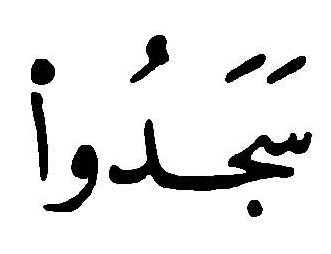 سَجَدُوا۟